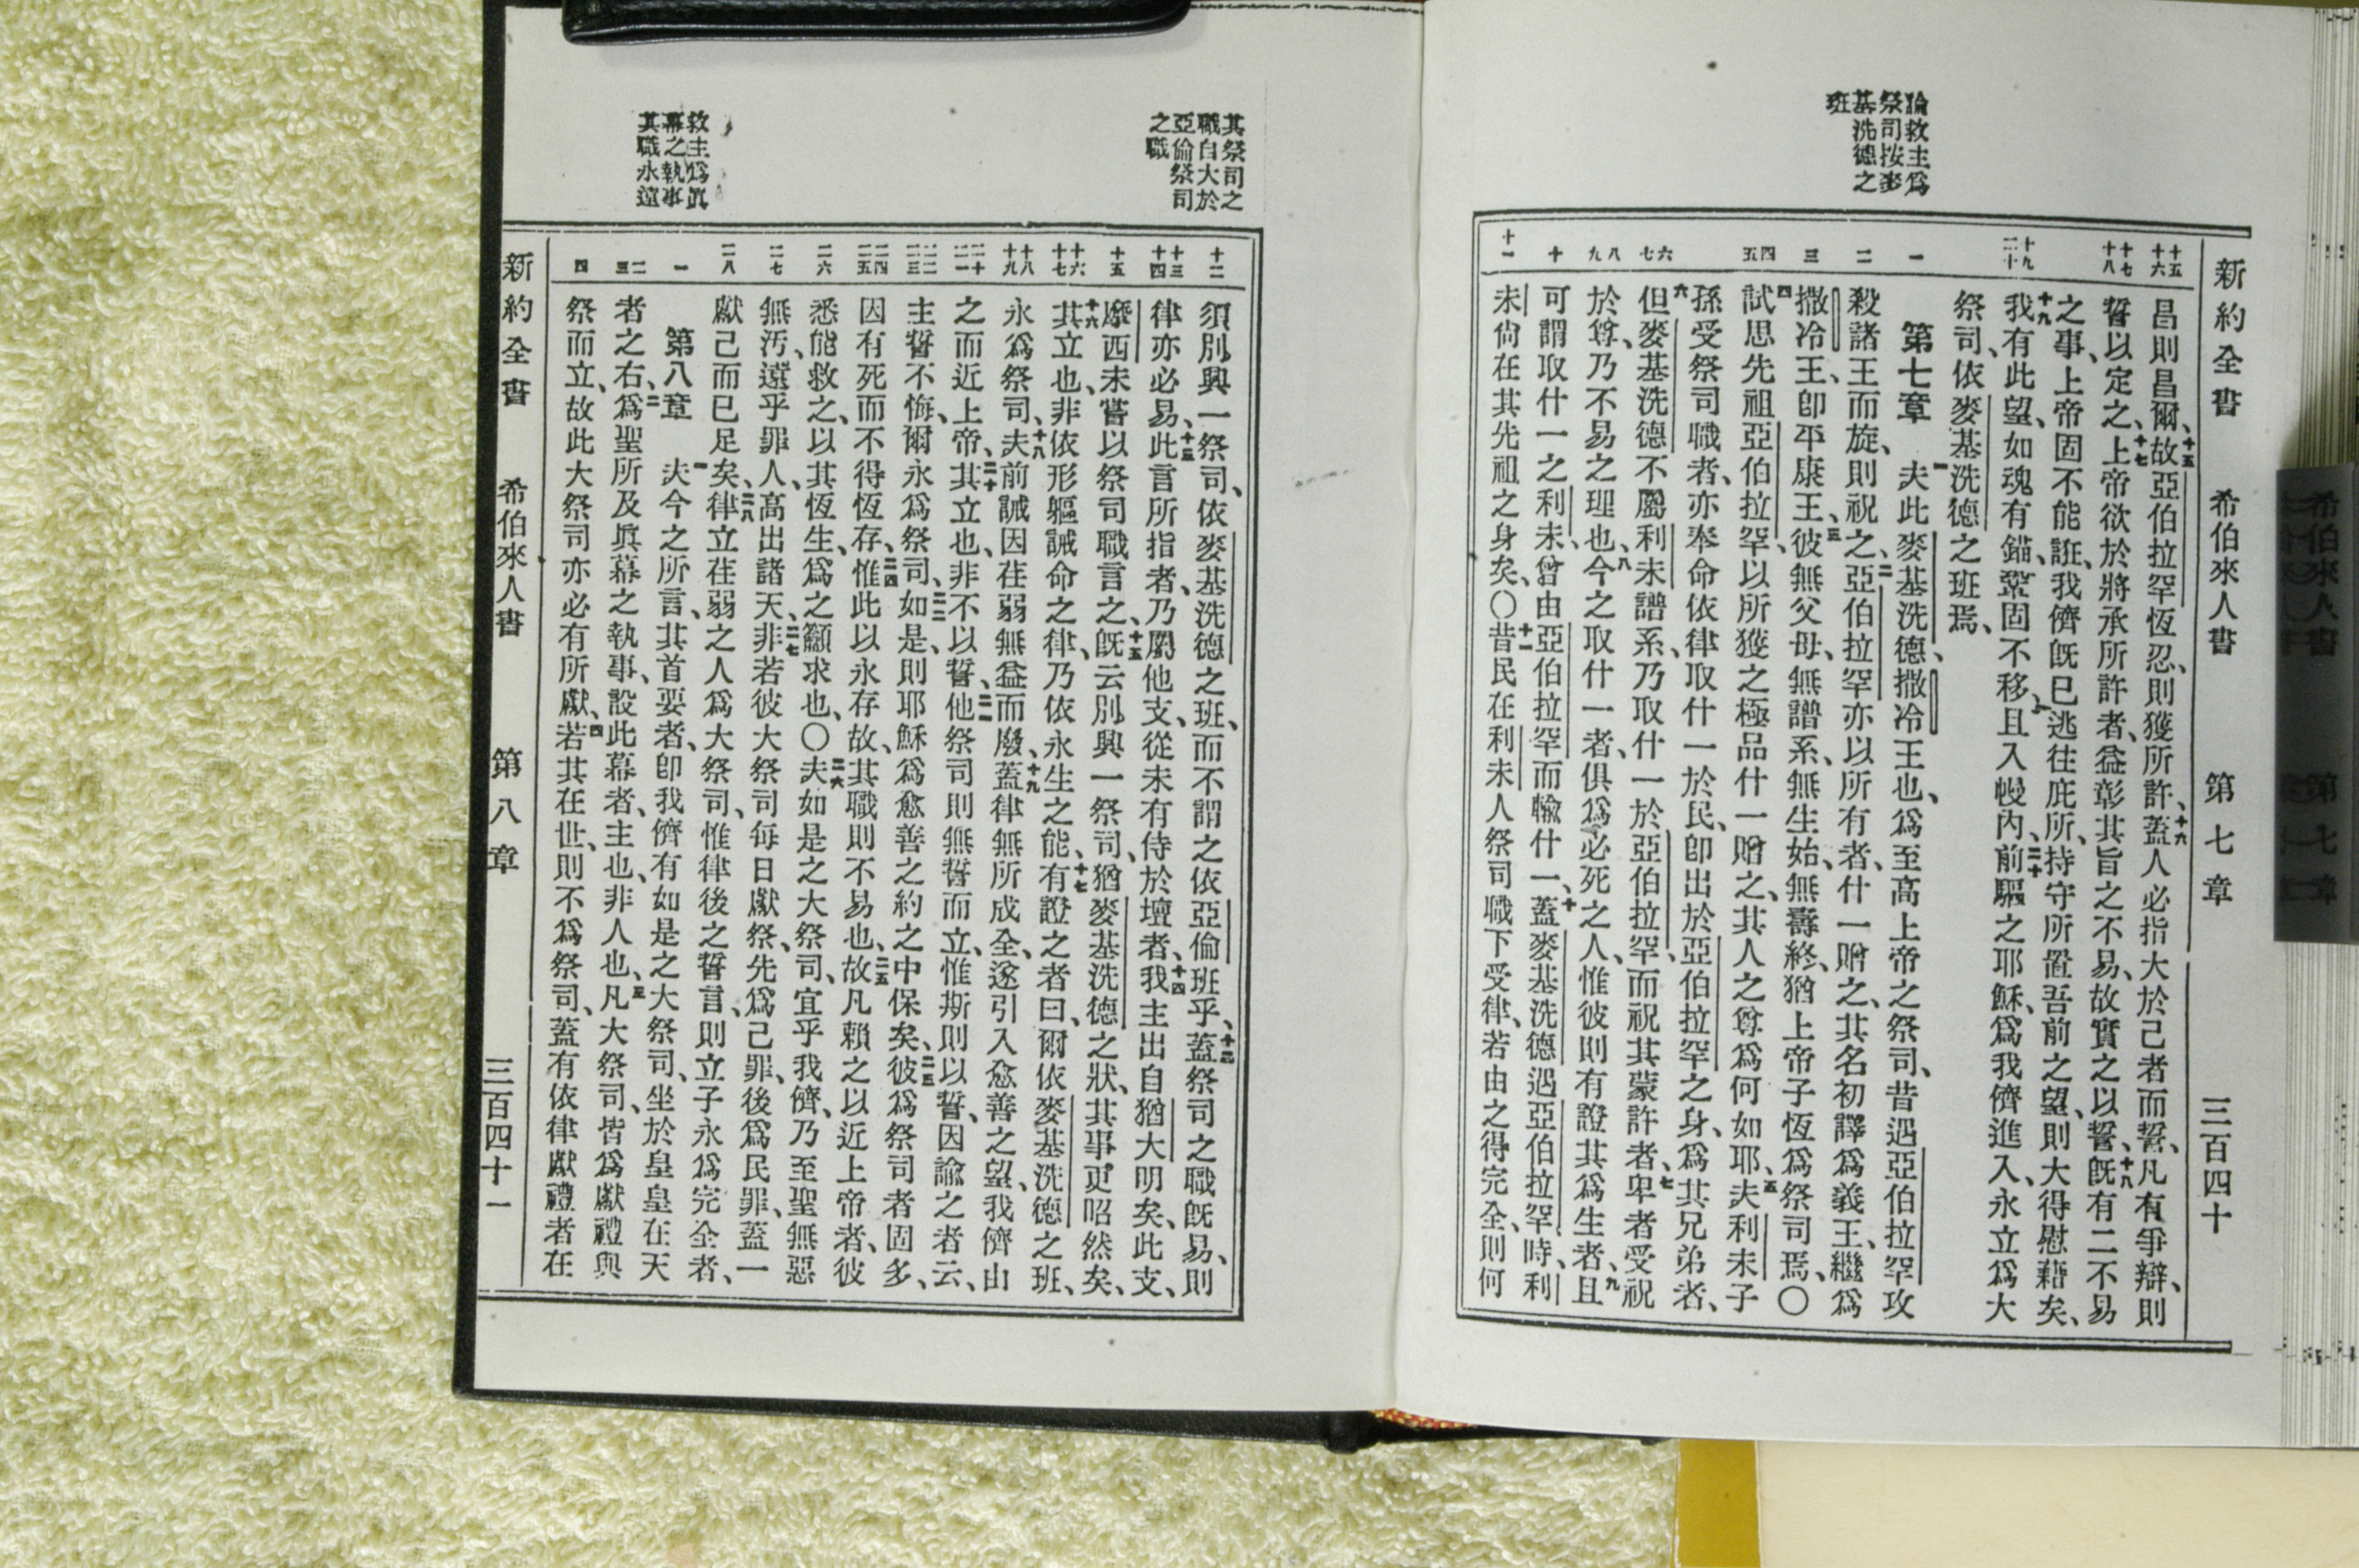 論救主為
祭司按麥
基洗德之
班
新約全書 希伯來人書 第七章 三百四十
十五
十六
昌則昌爾、十五故亞伯拉罕恆忍、則獲所許、十六蓋人必指大於己者而誓、凡有爭辯、則
十七
十八
誓以定之、十七上帝欲於將承所許者、益彰其旨之不易、故實之以誓、十八旣有二不易
之事、上帝固不能誑、我儕旣已逃往庇所、持守所置吾前之望、則大得慰藉矣、
十九
二十
十九我有此望、如魂有錨、鞏固不移、且入幔內、二十前驅之耶穌、爲我儕進入、永立爲大
祭司、依麥基洗德之班焉、
一
第七章 一夫此麥基洗德、撒冷王也、爲至高上帝之祭司、昔遇亞伯拉罕攻
二
殺諸王而旋、則祝之、二亞伯拉罕亦以所有者、什一贈之、其名初譯爲義王、繼爲
三
撒冷王、卽平康王、三彼無父母、無譜系、無生始、無壽終、猶上帝子恆爲祭司焉、〇
四
五
四試思先祖亞伯拉罕、以所獲之極品什一贈之、其人之尊爲何如耶、五夫利未子
孫受祭司職者、亦奉命依律取什一於民、卽出於亞伯拉罕之身、爲其兄弟者、
六
七
六但麥基洗德不屬利未譜系、乃取什一於亞伯拉罕、而祝其蒙許者、七卑者受祝
八
九
於尊、乃不易之理也、八今之取什一者、俱爲必死之人、惟彼則有證其爲生者、九且
十
可謂取什一之利未、曾由亞伯拉罕而輸什一、十蓋麥基洗德遇亞伯拉罕時、利
十一
未尙在其先祖之身矣、〇十一昔民在利未人祭司職下受律、若由之得完全、則何
其祭司之
職自大於
亞倫祭司
之職
救主爲眞
幕之執事
其職永遠
十二
須別興一祭司、依麥基洗德之班、而不謂之依亞倫班乎、十二蓋祭司之職旣易、則
十三
十四
律亦必易、十三此言所指者、乃屬他支、從未有侍於壇者、十四我主出自猶大明矣、此支、
十五
摩西未嘗以祭司職言之、十五旣云別興一祭司、猶麥基洗德之狀、其事更昭然矣、
十六
十七
十六其立也、非依形軀誡命之律、乃依永生之能、十七有證之者曰、爾依麥基洗德之班、
十八
十九
永爲祭司、十八夫前誡因荏弱無益而廢、十九蓋律無所成全、遂引入愈善之望、我儕由
二十
二一
之而近上帝、二十其立也、非不以誓、二一他祭司則無誓而立、惟斯則以誓、因諭之者云、
二二
二三
主誓不悔、爾永爲祭司、二二如是、則耶穌爲愈善之約之中保矣、二三彼爲祭司者固多、
二四
二五
因有死而不得恆存、二四惟此以永存故、其職則不易也、二五故凡賴之以近上帝者、彼
二六
悉能救之、以其恆生、爲之籲求也、〇二六夫如是之大祭司、宜乎我儕、乃至聖無惡
二七
無汚、遠乎罪人、高出諸天、二七非若彼大祭司每日獻祭、先爲己罪、後爲民罪、蓋一
二八
獻己而已足矣、二八律立荏弱之人爲大祭司、惟律後之誓言、則立子永爲完全者、
一
第八章 一夫今之所言、其首要者、卽我儕有如是之大祭司、坐於皇皇在天
二
三
者之右、二爲聖所及眞幕之執事、設此幕者、主也、非人也、三凡大祭司、皆爲獻禮與
四
祭而立、故此大祭司亦必有所獻、四若其在世、則不爲祭司、蓋有依律獻禮者在
新約全書 希伯來人書 第八章 三百四十一